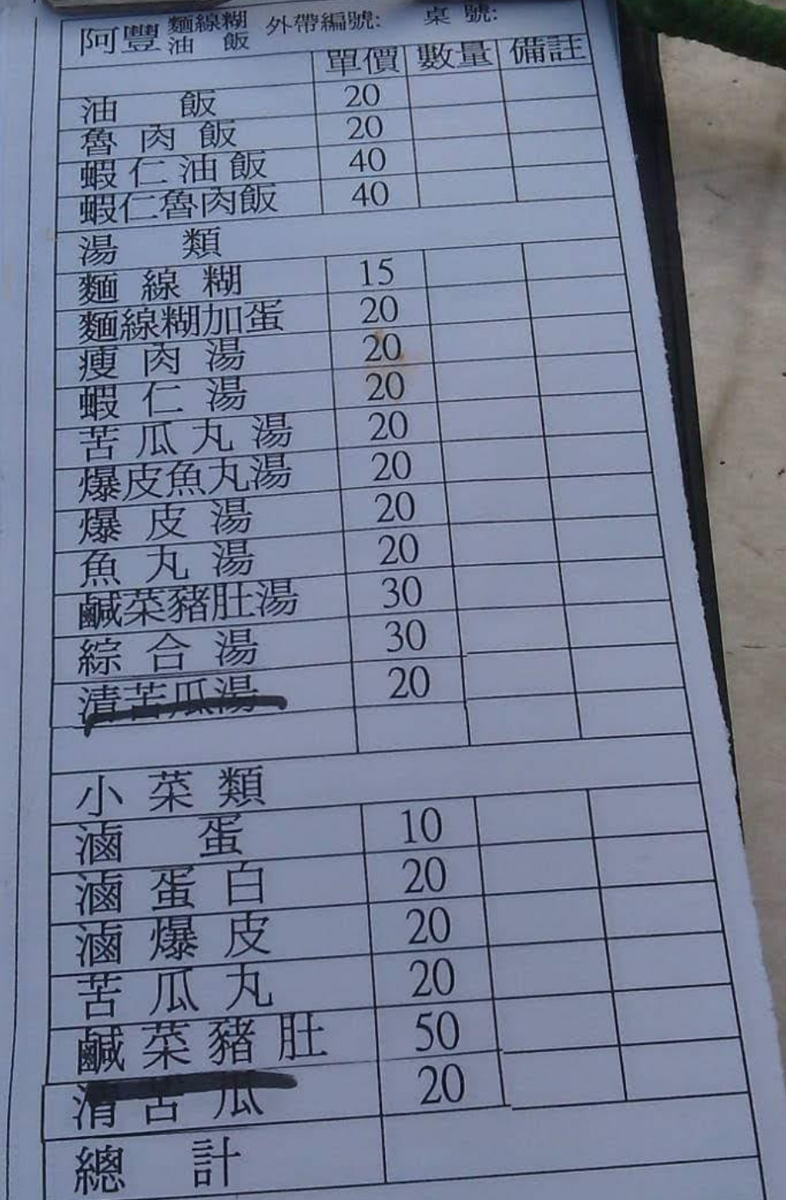 阿豐 麵線糊 油飯 外帶編號: 桌號:
單價 數量 備註
油飯 20
魯肉飯 20
蝦仁油飯 40
蝦仁魯肉飯 40
湯類
麵線糊 15
麵線糊加蛋 20
瘦肉湯 20
蝦仁湯 20
苦瓜丸湯 20
爆皮魚丸湯 20
爆皮湯 20
魚丸湯 20
鹹菜豬肚湯 30
綜合湯 30
清苦瓜湯 20
小菜類
滷蛋 10
滷蛋白 20
滷爆皮 20
苦瓜丸 20
鹹菜豬肚 50
清苦瓜 20
總計